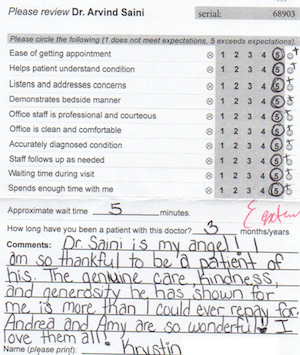 Please review Dr. Arvind Saini serial: 68903
Please circle the following (1 does not meet expectations, 5 exceeds expectations).
Ease of getting appointment 1 2 3 4 5
Helps patient understand condition 1 2 3 4 5
Listens and addresses concerns 1 2 3 4 5
Demonstrates bedside manner 1 2 3 4 5
Office staff is professional and courteous 1 2 3 4 5
Office is clean and comfortable 1 2 3 4 5
Accurately diagnosed condition 1 2 3 4 5
Staff follows up as needed 1 2 3 4 5
Waiting time during visit 1 2 3 4 5
Spends enough time with me 1 2 3 4 5
Approximate wait time 5 minutes.
How long have you been a patient with this doctor? 3 months/years
Comments: Dr. Saini is my angel! I
am so thankful to be a patient of
his. The genuine care, kindness,
and generosity he has shown for
me is more than I could ever repay for.
Andrea and Amy are so wonderful! I
love them all!
Name (please print): Krystin